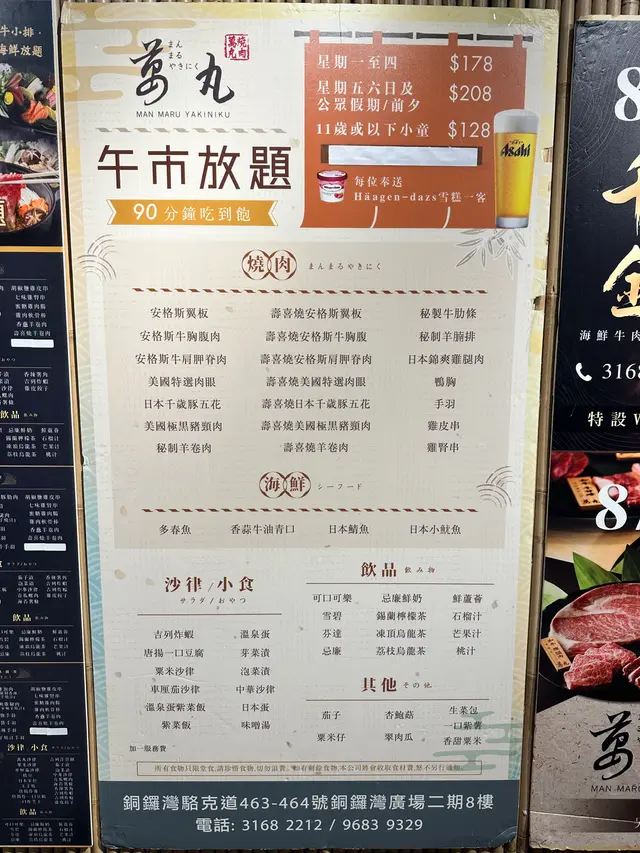 萬丸
まん
まる
やきにく
燒肉
萬丸
MAN MARU YAKINIKU
星期一至四 $178
星期五六日及
公眾假期/前夕 $208
11歲或以下小童 $128
每位奉送
Häagen-dazs雪糕一客
Asahi
午市放題
90分鐘吃到飽
燒肉 まんまるやきにく
安格斯翼板 壽喜燒安格斯翼板 秘製牛肋條
安格斯牛胸腹肉 壽喜燒安格斯牛胸腹 秘制羊腩排
安格斯牛肩胛脊肉 壽喜燒安格斯肩胛脊 日本錦爽雞腿肉
美國特選肉眼 壽喜燒美國特選肉眼 鴨胸
日本千歲豚五花 壽喜燒日本千歲豚五花 手羽
美國極黑豬頸肉 壽喜燒美國極黑豬頸肉 雞皮串
秘制羊卷肉 壽喜燒羊卷肉 雞腎串
海鮮 シーフード
多春魚 香蒜牛油青口 日本鯖魚 日本小魷魚
沙律/小食
サラダ/おやつ
吉列炸蝦 溫泉蛋
唐揚一口豆腐 芽菜漬
粟米沙律 泡菜漬
車厘茄沙律 中華沙律
溫泉蛋紫菜飯 日本蛋
紫菜飯 味噌湯
加一服務費
飲品 飲み物
可口可樂 忌廉鮮奶 鮮蘆薈
雪碧 錫蘭檸檬茶 石榴汁
芬達 凍頂烏龍茶 芒果汁
忌廉 荔枝烏龍茶 桃汁
其他 その他
茄子 杏鮑菇 生菜包
一口紫薯
粟米仔 翠肉瓜 香甜粟米
所有食物只限堂食,請珍惜食物,切勿浪費。如有剩餘食物,本公司將會啟取食材費,恕不另行通知
銅鑼灣駱克道463-464號銅鑼灣廣場二期8樓
電話: 3168 2212 / 9683 9329
牛小排·
海鮮放題
飲品
沙律 小食
飲品
海鮮牛肉
3168
特設
8
萬
MAN MARU